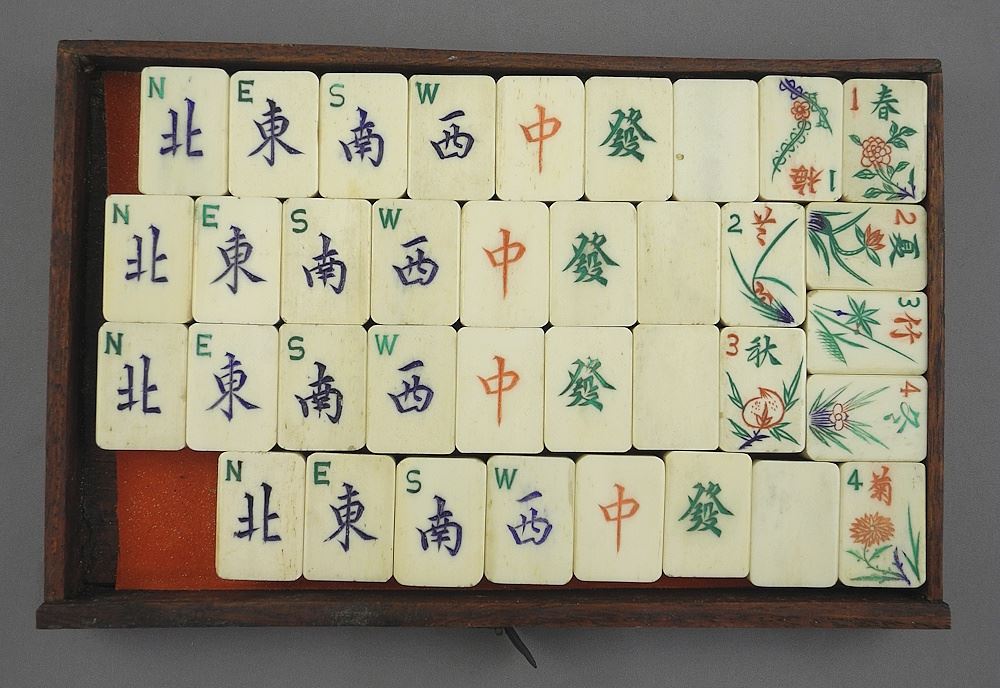 N 北 E 東 S 南 W 西 中 發 1 梅 1 春
N 北 E 東 S 南 W 西 中 發 2 兰 2 夏
3 竹
N 北 E 東 S 南 W 西 中 發 3 秋 4 冬
N 北 E 東 S 南 W 西 中 發 4 菊